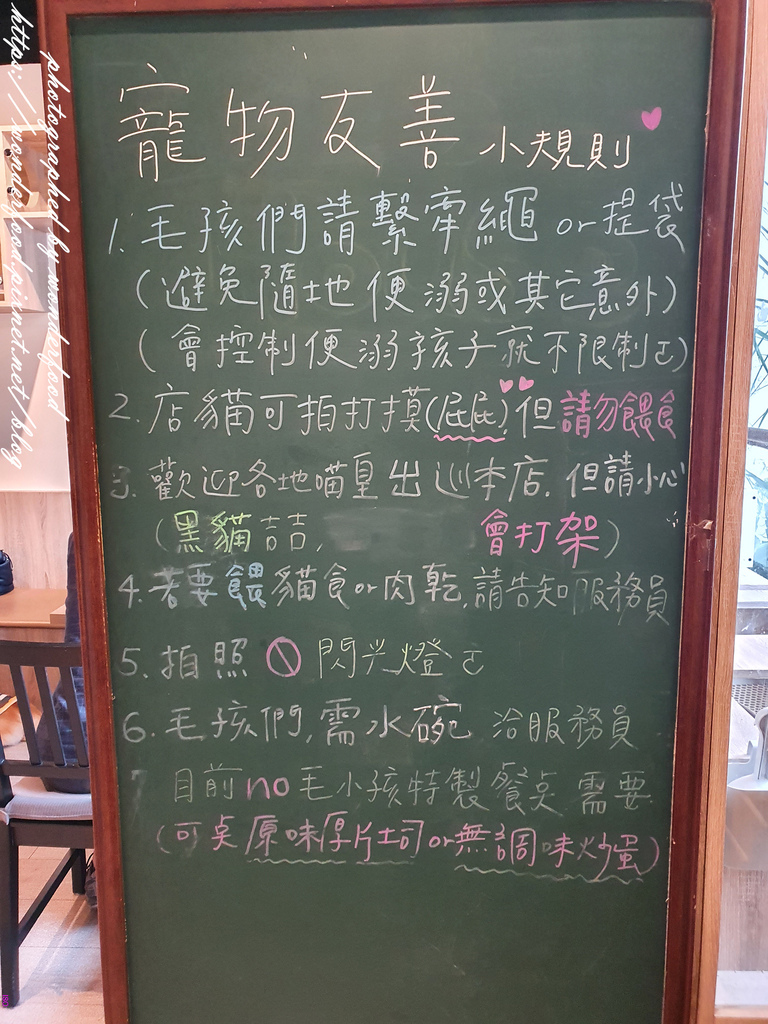 寵物友善小規則
1.毛孩們請繫牽繩or提袋
(避免隨地便溺或其它意外)
(會控制便溺孩子就不限制)
2.店貓可拍打摸(屁屁),但請勿餵食
3.歡迎各地喵皇出巡本店.但請小心
(黑貓吉吉, 會打架)
4.若要餵貓食or肉乾,請告知服務員
5.拍照🚫閃光燈
6.毛孩們,需水碗 洽服務員
7 目前no毛小孩特製餐点 需要
(可点原味厚片土司or無調味炒蛋)
photographed by wonderfood
https://wonderfood.aiinet.net/blog